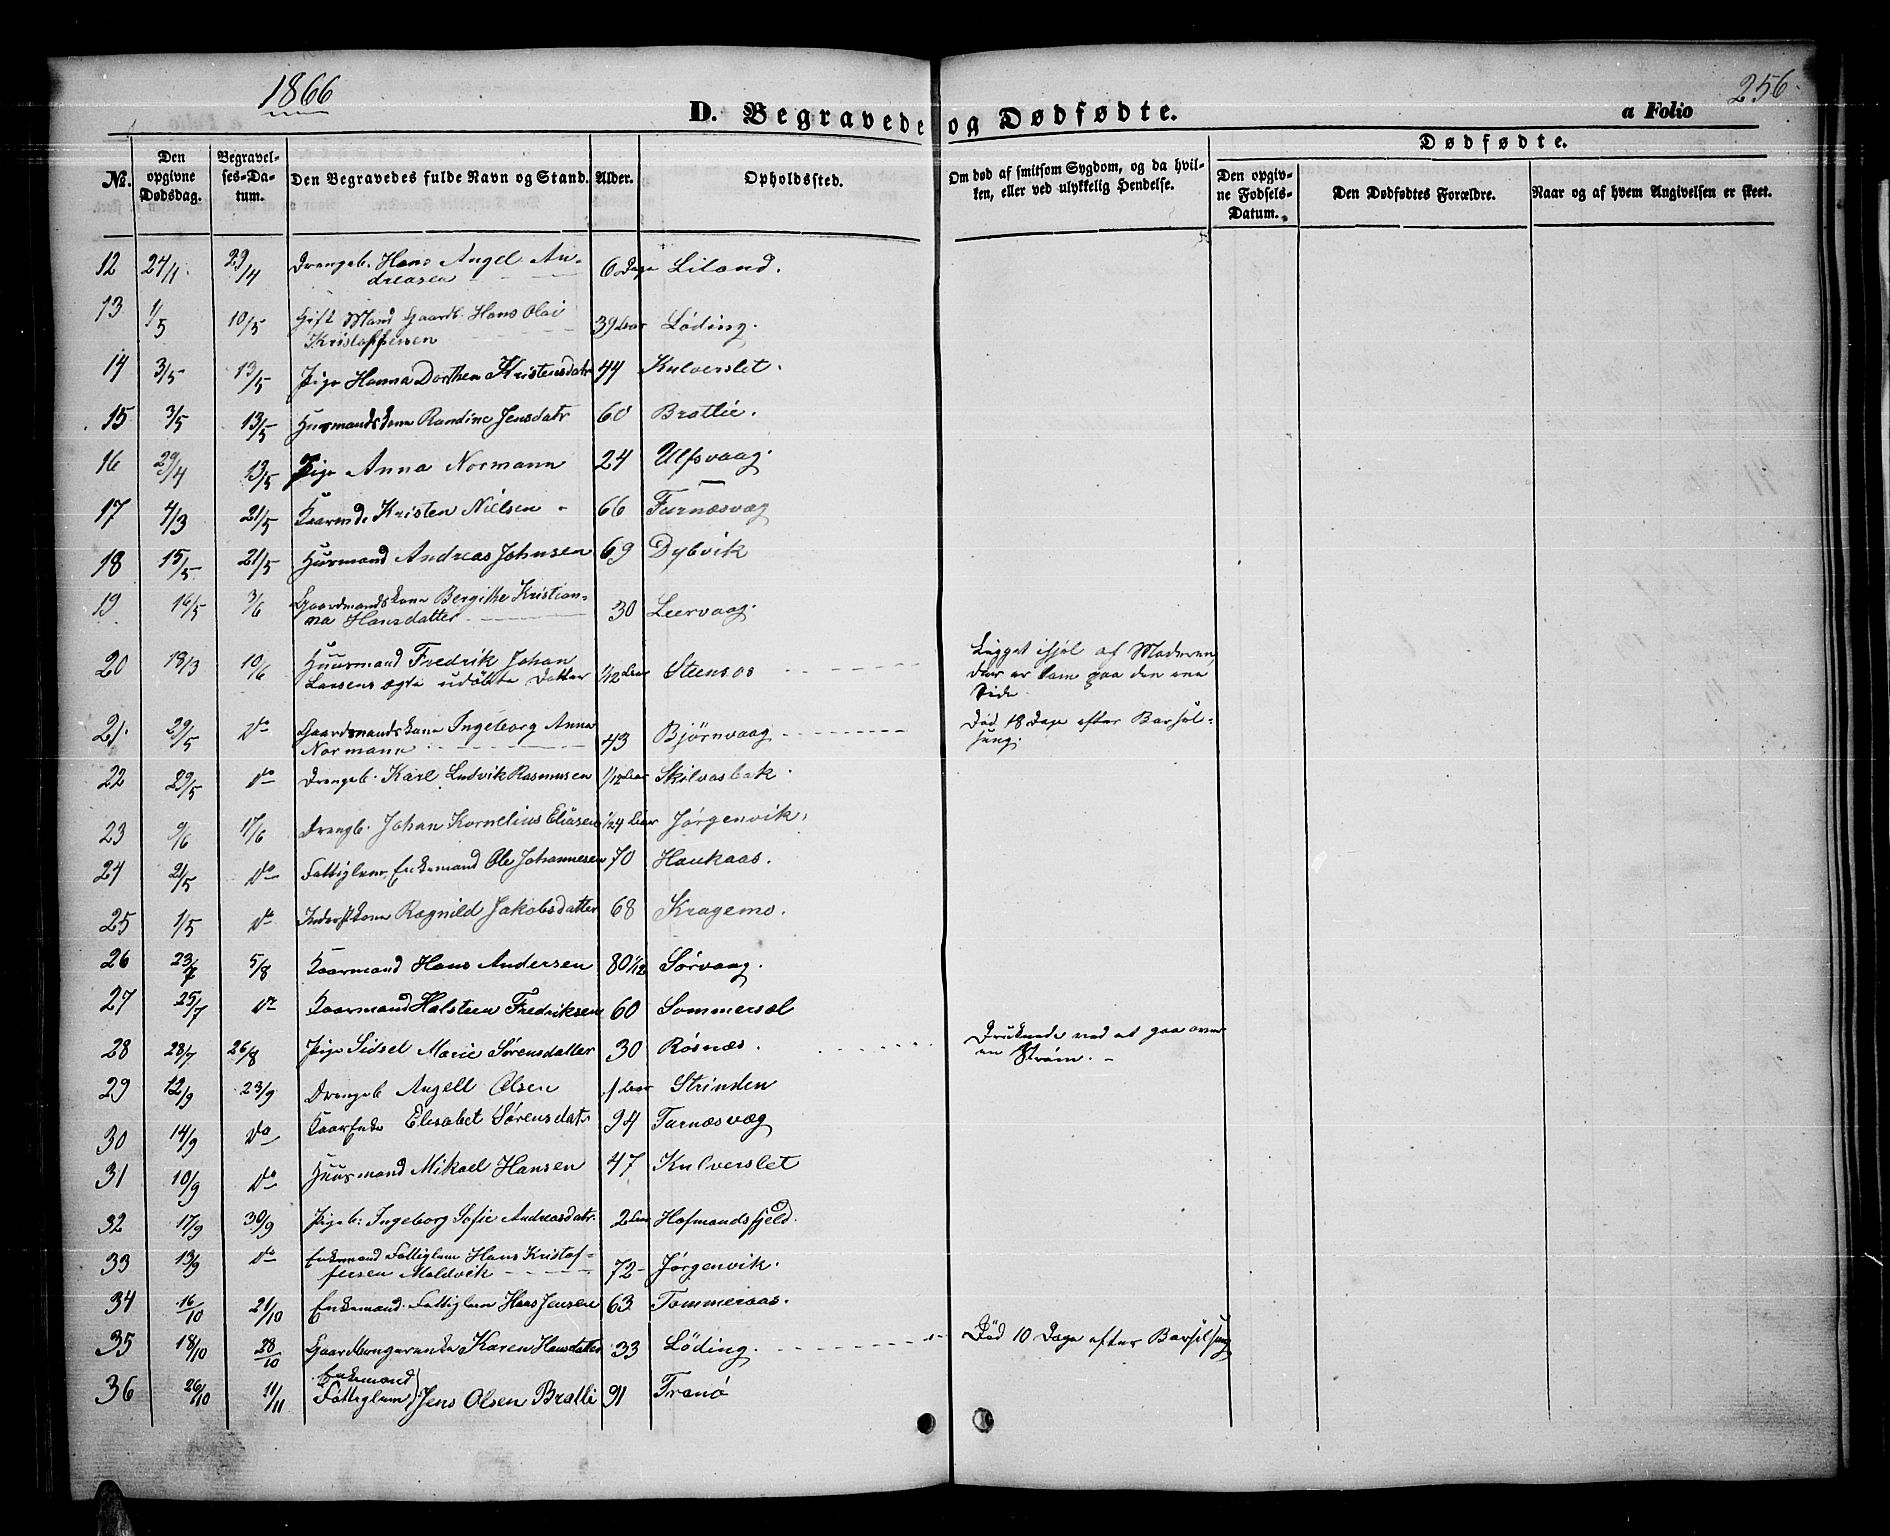 1866
256
D. Begravede og Dødfødte.
a Folio
No.
Den opgivne Dødsdag.
Begravelses-Datum.
Den Begravedes fulde Navn og Stand.
Alder.
Opholdssted.
Om død af smitsom Sygdom, og da hvilken, eller ved ulykkelig Hendelse.
Dødfødte.
Den opgivne Fødsels-Datum.
Den Dødfødtes Forældre.
Naar og af hvem Angivelsen er skeet.
12 24/4 29/4 Drengeb. Hans Angel An-
dreasen 6 Dage Liland.
13 1/5 10/5 Gift Mand Gaardb. Hans Olai
Kristoffersen 39 Aar Løding.
14 3/5 13/5 Pige Hanna Dorthea Kristensdatr 44 Kulverslet.
15 3/5 13/5 Huusmandskone Randine Jensdatr 60 Brotlie.
16 29/4 13/5 Pige Anna Normann 24 Ulfsvaag.
17 4/3 21/5 Kaarmd. Kristen Nielsen 66 Furnæsvag
18 15/5 21/5 Huusmand Andreas Johnsen 69 Dybvik
19 16/5 3/6 Gaardmandskone Bergitte Kristian-
na Hansdatter 30 Leervaag.
20 18/3 10/6 Huusmand Fredrik Johan
Larsens ægte udøbte Datter 1/12 Aar Steensos
Ligget ihjel af Moderen,
der er lam paa den ene
Side.
21. 29/5 Do Gaardmandskone Ingeborg Anna
Normann 43 Bjørnvaag
Død 18 Dage efter Barsel-
seng.
22 29/5 do Drengeb. Karl Ludvik Rasmusen 1/12 Aar Skilvasbak.
23 9/6 17/6 Drengb. Johan Kornelius Eliasen 1/24 Aar Jørgenvik.
24 2/5 do Fattiglem, Enkemand Ole Johannesen 70 Haukaas.
25 1/5 do Inderstkone Ragnild Jakobsdatter 68 Kragemo.
26 23/7 5/8 Kaarmand Hans Andersen 80 1/12 Sørvaag.
27 25/7 do Kaarmand Halsteen Fredriksen 60 Sommersæl
28 28/7 26/8 Pige Sidsel Marie Sørensdatter 30 Røsnæs.
Druknede ved at gaa over
en Strøm.
29 12/9 23/9 Drengeb Angell Olsen 1 Aar Strinden
30 14/9 Do Kaar Enke Elisabet Sørensdatr 94 Furnæsvæg
31 10/9 Do Huusmand Mikael Hansen 47 Kulverslet
32 17/9 30/9 Pigeb: Ingeborg Sofie Andreasdatr. 2 Aar Hofmandsfjeld.
33 13/9 do Enkemand Fattiglem Hans Kristof-
fersen Moldvik 72 Jørgenvik.
34 16/10 21/10 Enkemand. Fattiglem Hans Jensen 63 Tommeraas.
35 18/10 28/10 Gaardbrugerenke Karen Hansdatter 33 Løding.
Død 10 Dage efter Barselseng
36 26/10 11/11 Enkemand
Fattiglem Jens Olsen Bratli 91 Tranö